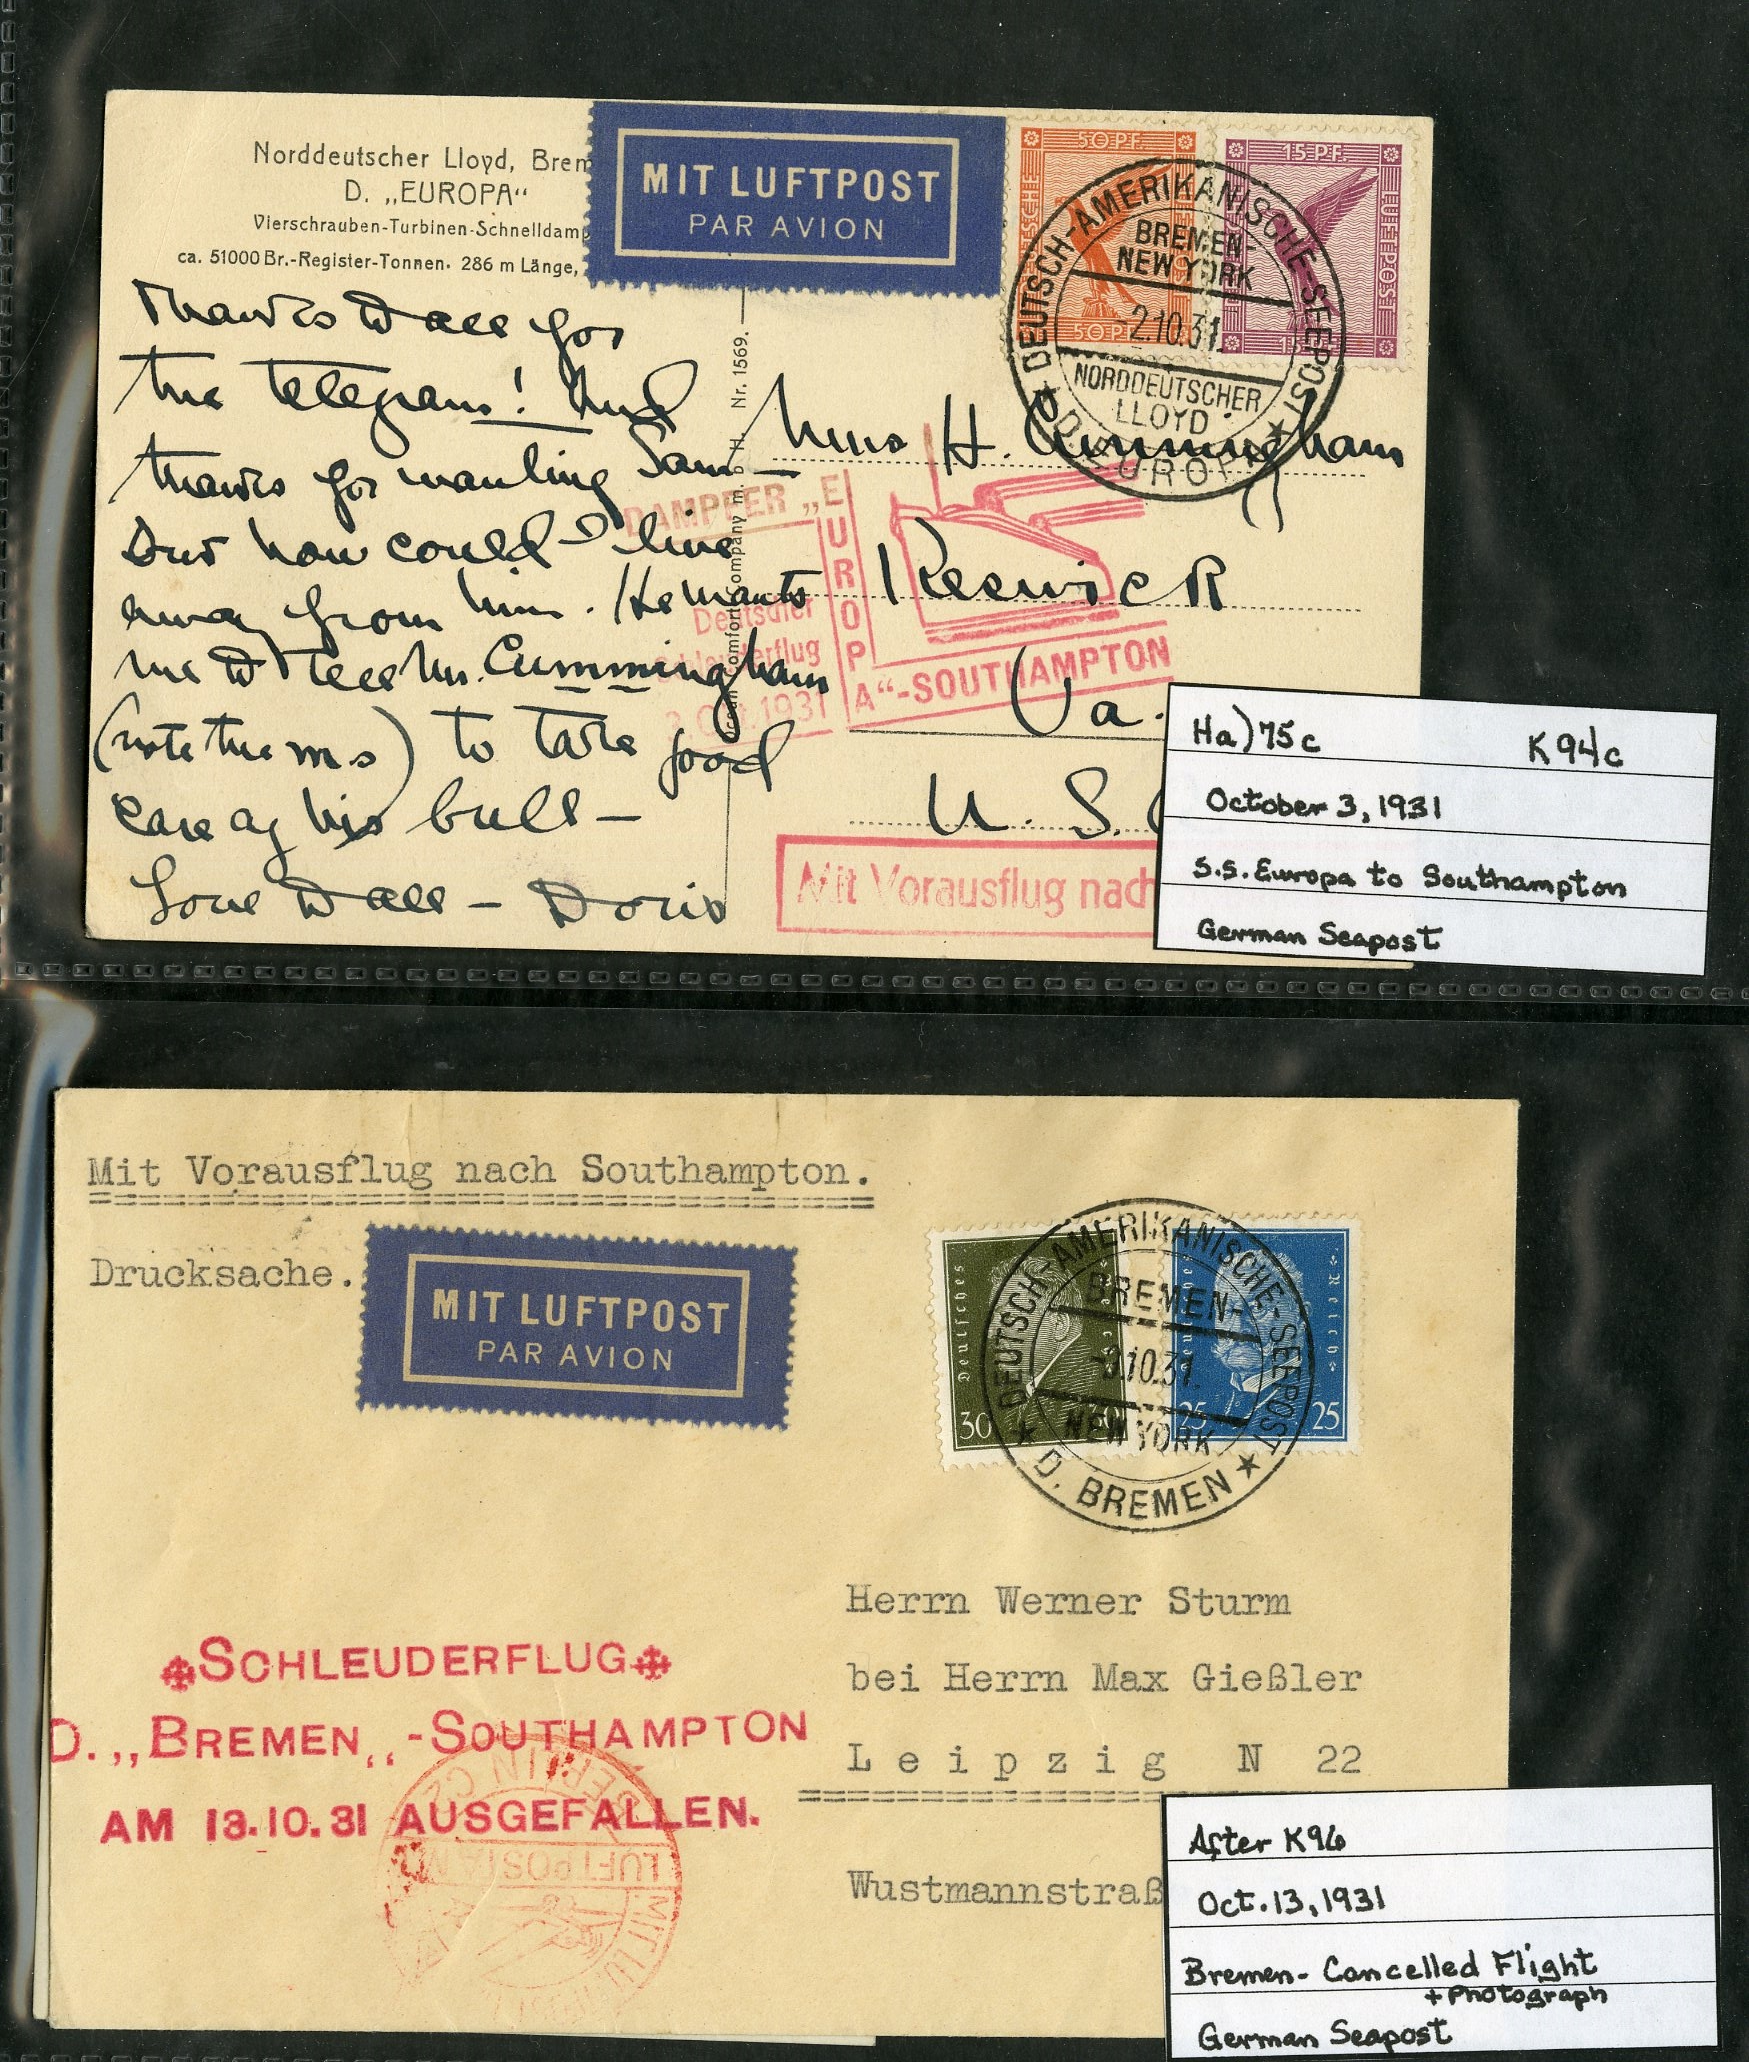 Norddeutscher Lloyd, Brem
D. „EUROPA“
Vierschrauben-Turbinen-Schnelldamp
ca. 51000 Br.-Register-Tonnen. 286 m Länge,
MIT LUFTPOST
PAR AVION
50 PF.
15 PF.
LUFTPOST
DEUTSCH-AMERIKANISCHE-SEEPOST
BREMEN-
NEW YORK
2.10.31.
NORDDEUTSCHER
LLOYD
D. EUROPA
Thanks to all for
the telegram! And
thanks for wanting Sam –
but how could I live
away from him. He wants
me to tell Mr. Cummingham
(note the ms) to take good
care of his bull –
Love to all – Doris
Nr. 1569.
Miss H. Cunningham
Keswick
Va.
U. S.
DAMPFER „EUROPA“-SOUTHAMPTON
Deutscher
Schleuderflug
3. Okt. 1931
Mit Vorausflug nach
Ha) 75c K94c
October 3, 1931
S.S. Europa to Southampton
German Seapost
Mit Vorausflug nach Southampton.
Drucksache.
MIT LUFTPOST
PAR AVION
Deutsches
Reich
30
25 25
DEUTSCH-AMERIKANISCHE-SEEPOST
BREMEN-
10.31.
NEW YORK
D. BREMEN
Herrn Werner Sturm
bei Herrn Max Gießler
Leipzig N 22
Wustmannstraß
SCHLEUDERFLUG
D. „BREMEN„-SOUTHAMPTON
AM 13.10.31 AUSGEFALLEN.
BERLIN C2
LUFTPOSTAMT
After K96
Oct. 13, 1931
Bremen- Cancelled Flight
+ Photograph
German Seapost